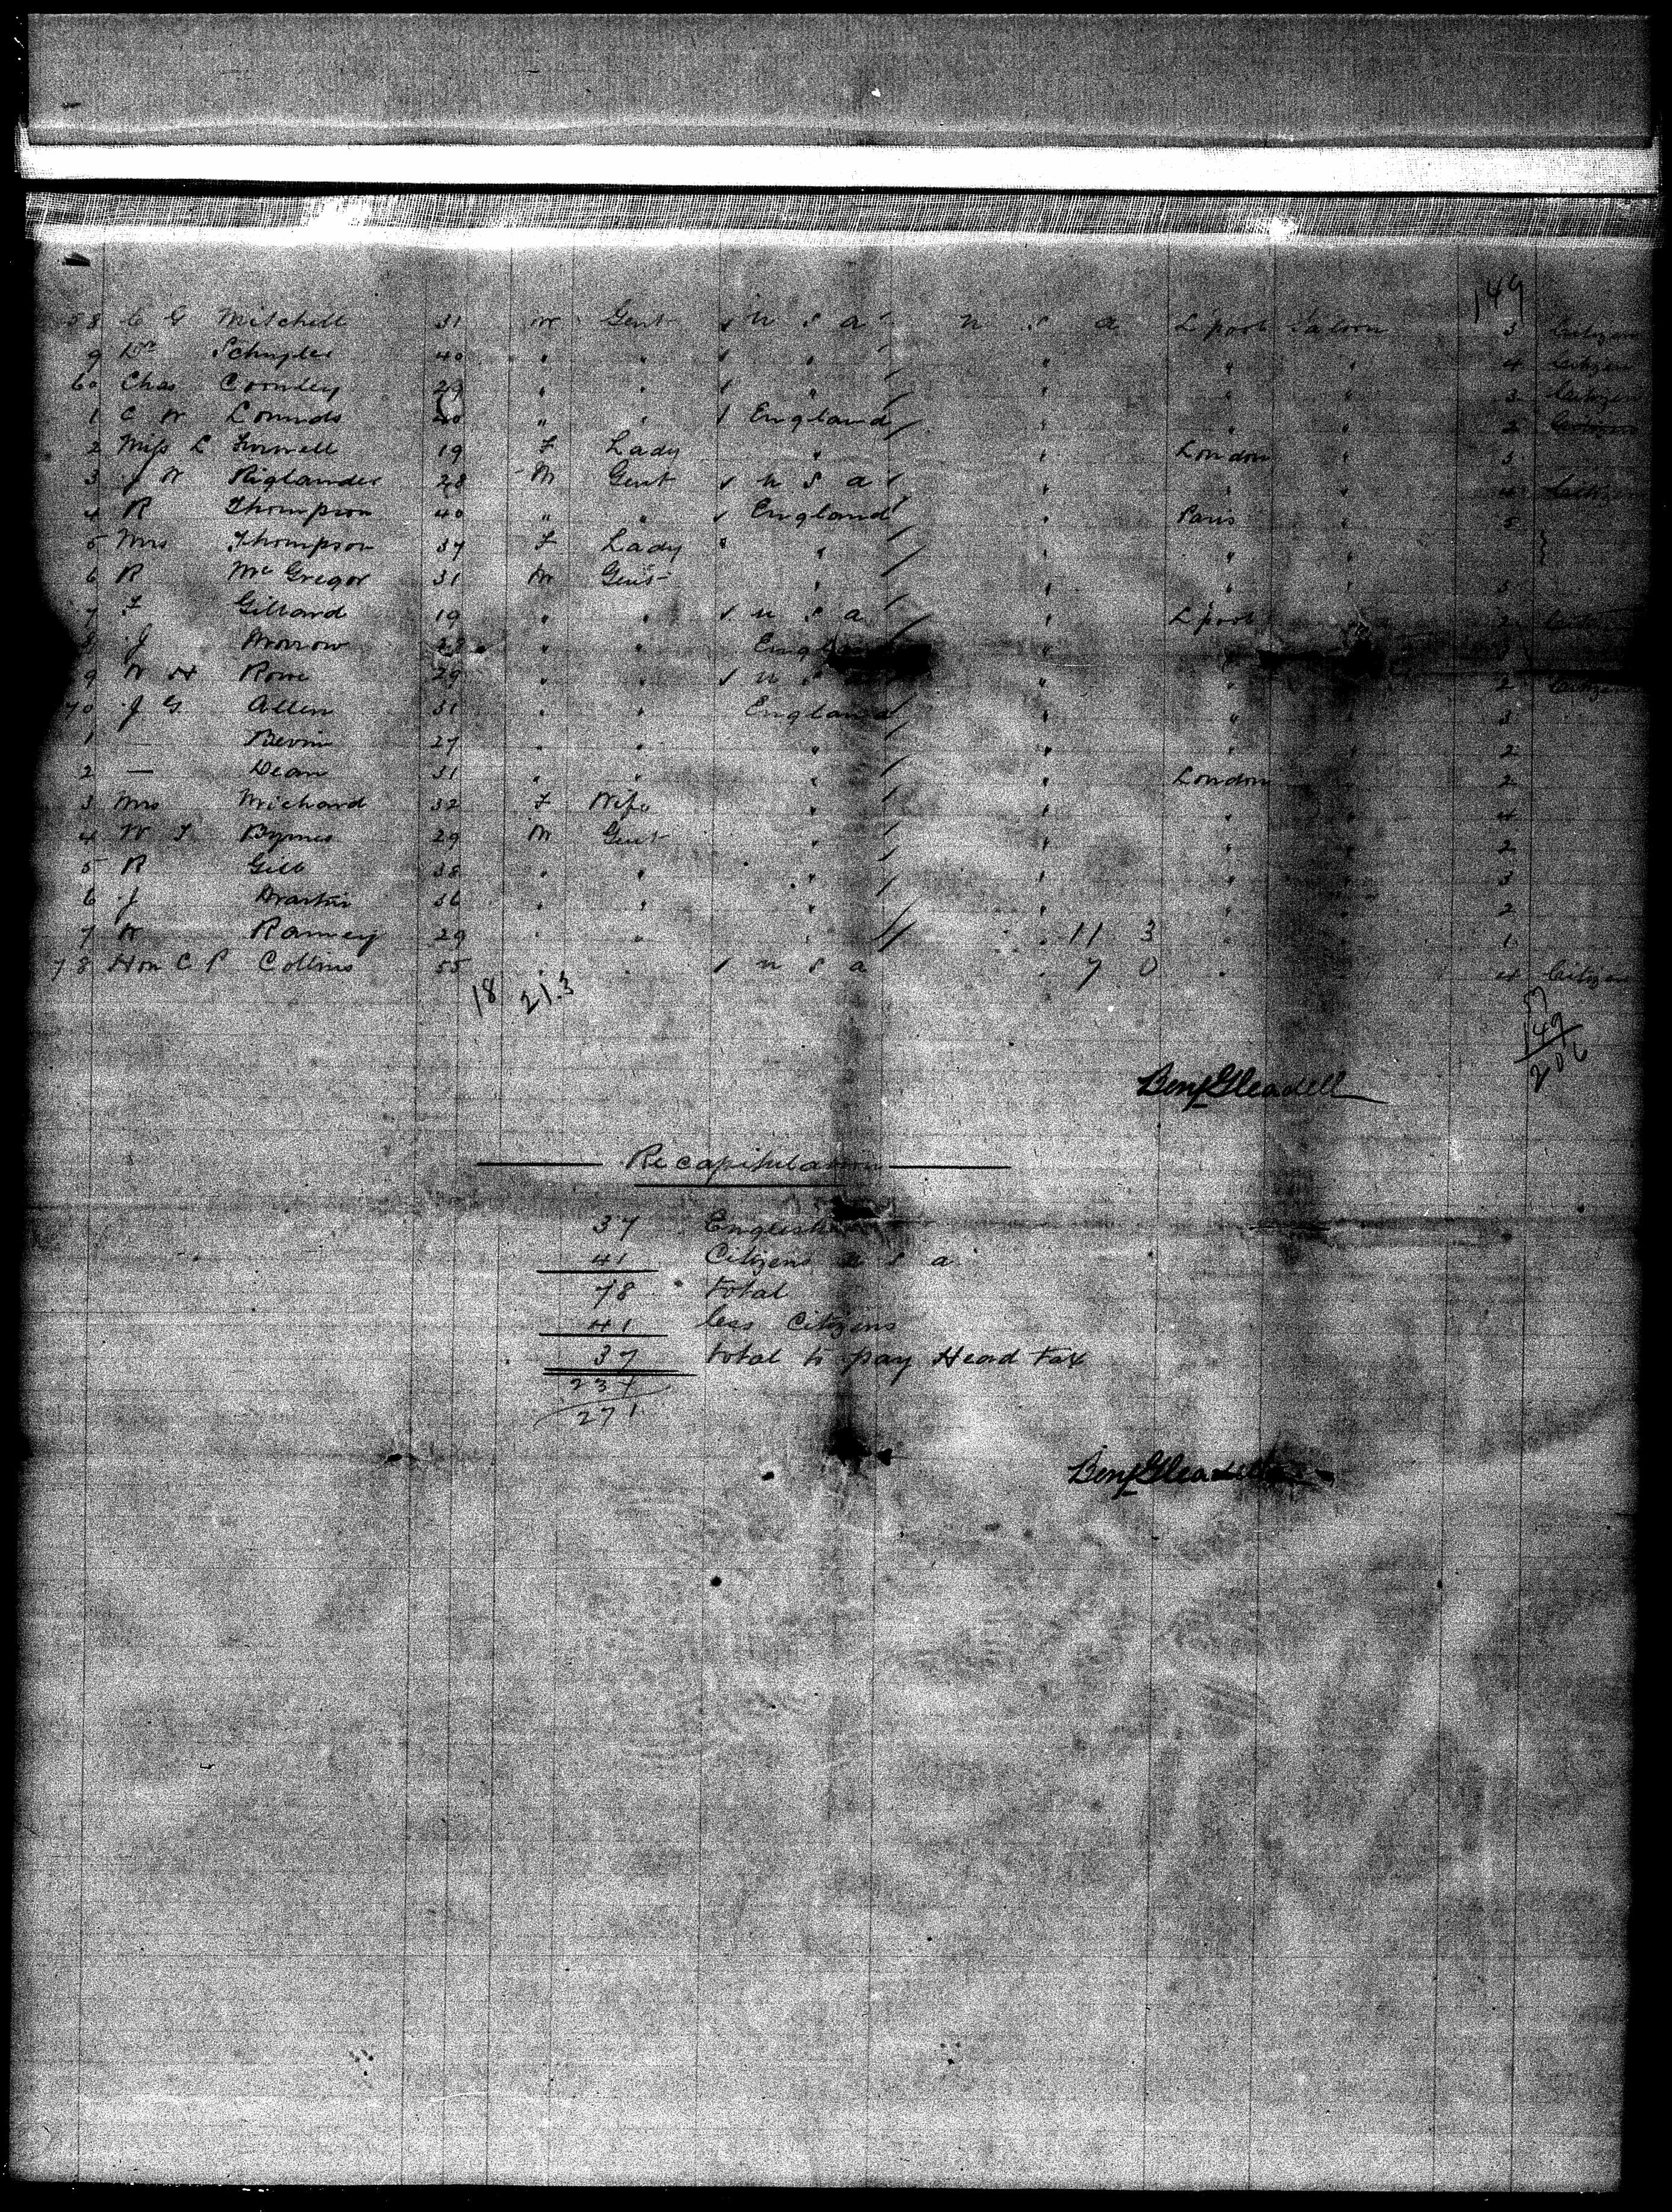 149
58 C G Mitchell 31 m Gent u s a u s a L'pool Saloon 3 Citizen
9 Schuyler 40 " " " " " " 4 Citizen
60 Chas 29 " " " " " " 3 Citizen
1 C W Lounds 40 " " England " " " 2 Citizen
2 Miss L 19 F Lady " " London " 3
3 J W Riglander 28 M Gent u s a " " " 4 Citizen
4 R Thompson 40 " " England " Paris " 5
5 Mrs Thompson 37 F Lady " " " "
6 R McGregor 31 M Gent " " " " 5
7 F Gillard 19 " " u s a " L'pool 2
8 J Morrow 28 " " England " "
9 W H Rowe 29 " " u s a " " 2 Citizen
70 J G Allen 31 " " England " " 3
1 — Bevin 27 " " " " " " 2
2 — Dean 31 " " " " London " 2
3 Mrs 32 F Wife " " " " 4
4 W F Byrnes 29 M Gent " " " " 2
5 R Gill 38 " " " " " " 3
6 J Martin 36 " " " " " " 2
7 W Ramsey 29 " " " 11 3 " 1
78 Hon C P Collins 55 " " u s a 7 0 " 4 Citizen
18 21.3
57
149
206
Benj Gleadell
Recapitulation
37 English
41 Citizens u s a
78 total
41 less Citizens
37 total to pay Head Tax
234
271
Benj Gleadell